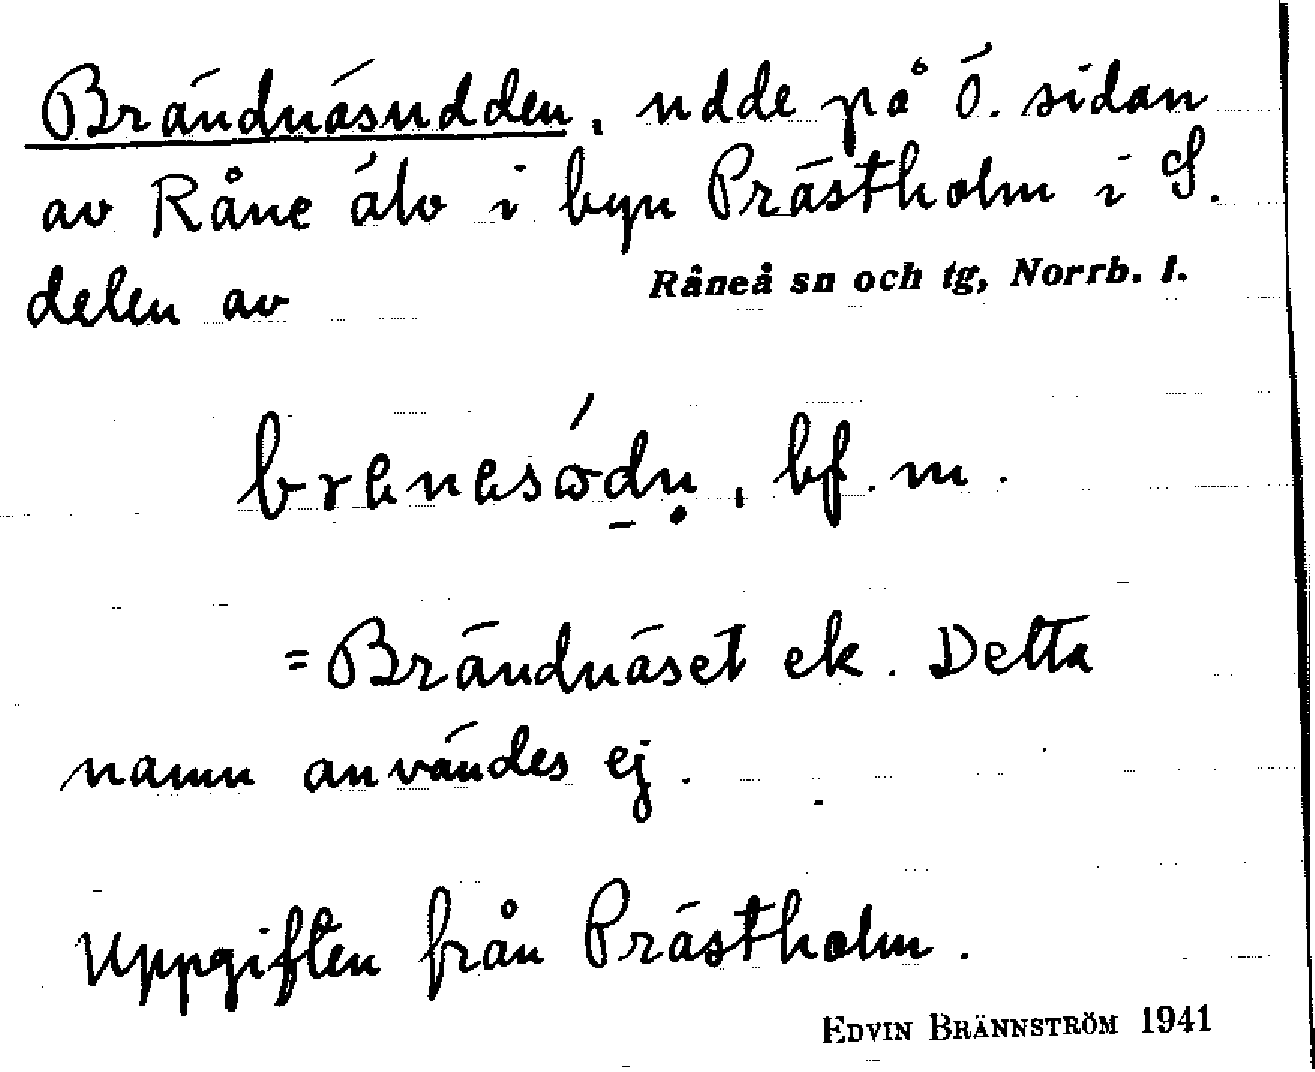 Brändnäsudden, udde på Ö. sidan
av Råne älv i byn Prästholm i S.
delen av Råneå sn och tg, Norrb. l.
bf. m.
= Brändnäset ek. Detta
namn användes ej.
Uppgiften från Prästholm.
EDVIN BRÄNNSTRÖM 1941